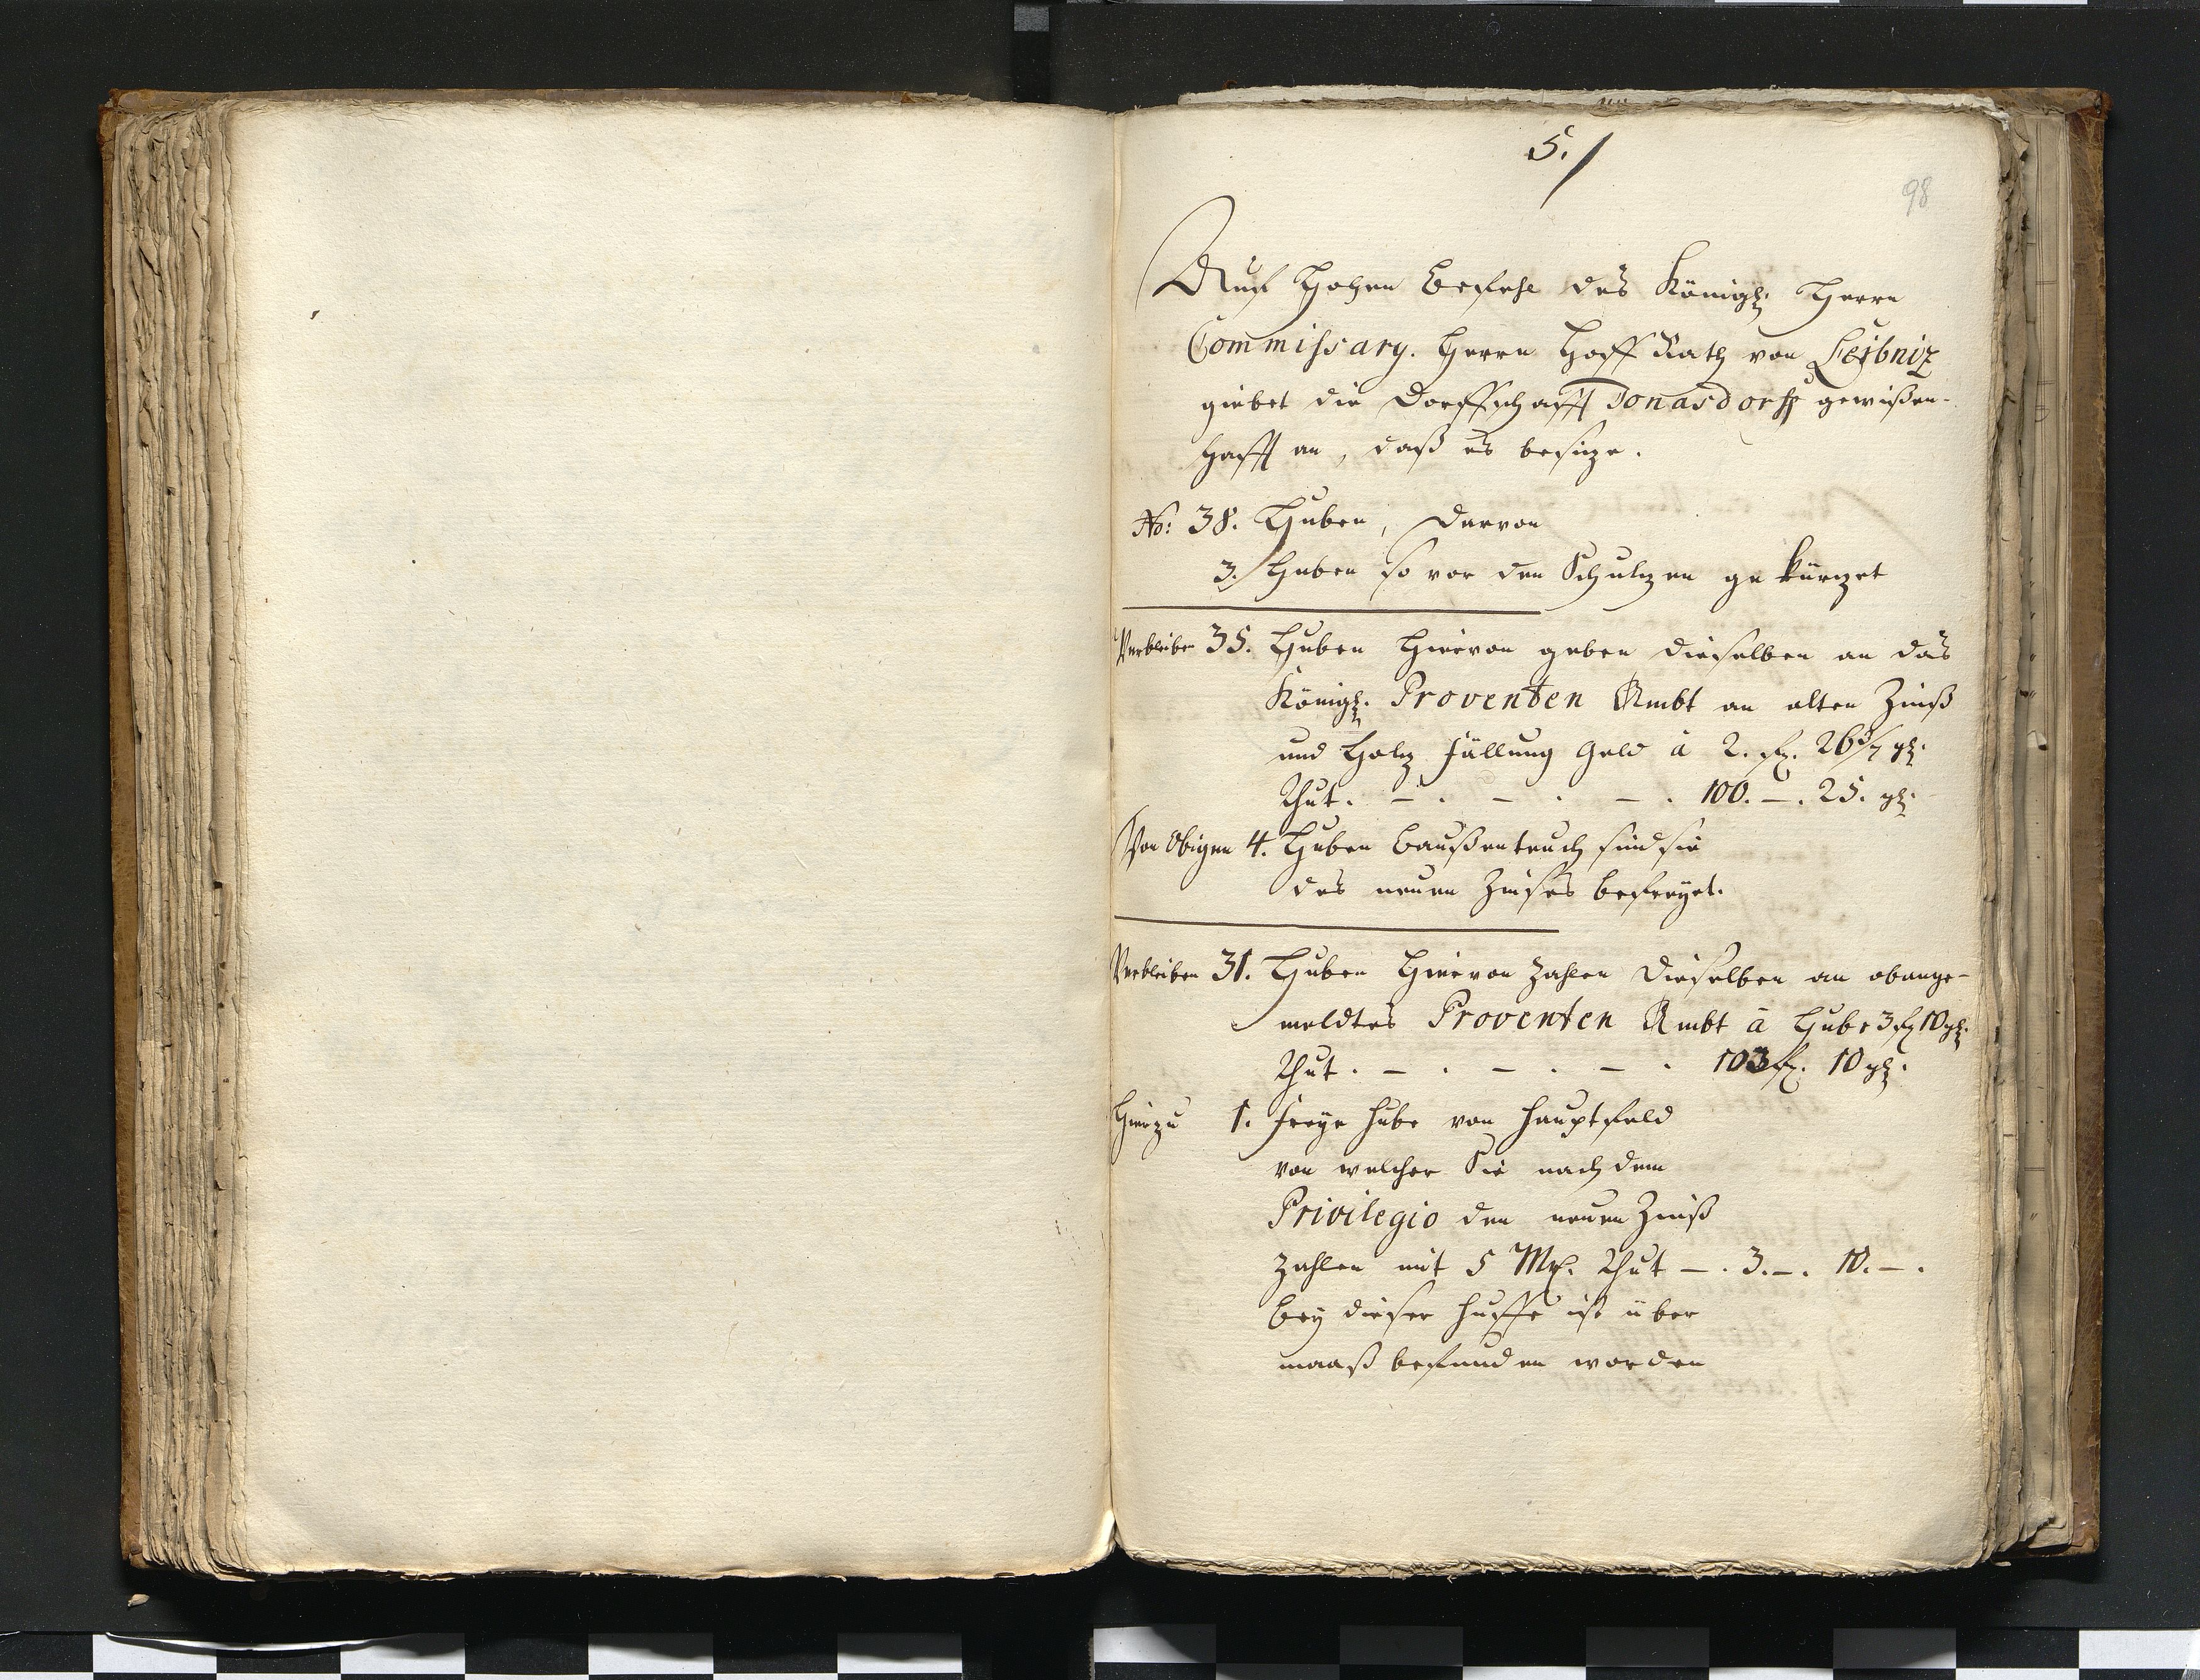 5./
98
Auf Hohen Befehl des Königl: Herrn
Commissary. Herrn Hoff Rath von Leibniz
giebet die Dorffschafft Jonasdorff gewißen-
hafft an, daß es besize.
No: 38. Huben, darvon
3. Huben so vor den Schultzen gekürtzet
Verbleiben 35. Huben Hiervon geben dieselben an das
Königl. Proventen Ambt an alten Zinß
und Holtz fällung Geld â 2. fl. 26 3/7 gl.
Thut. – . – . – . 100. – . 25. gl.
Von Obigen 4. Huben sind sie
des neuen Zinses befreyet.
Verbleiben 31. Huben Hiervon Zahlen dieselben an obange-
meldtes Proventen Ambt â Hube 3 fl 10 gl.
Thut . – . – . – . 103 fl. 10 gl.
Hierzu 1. freye Hube von Hauptfeld
von welcher Sie nach dem
Privilegio den neuen Zinß
Zahlen mit 5 Mk. Thut – . 3. – . 10. – .
Bey dieser Huffe ist über
maaß befunden worden